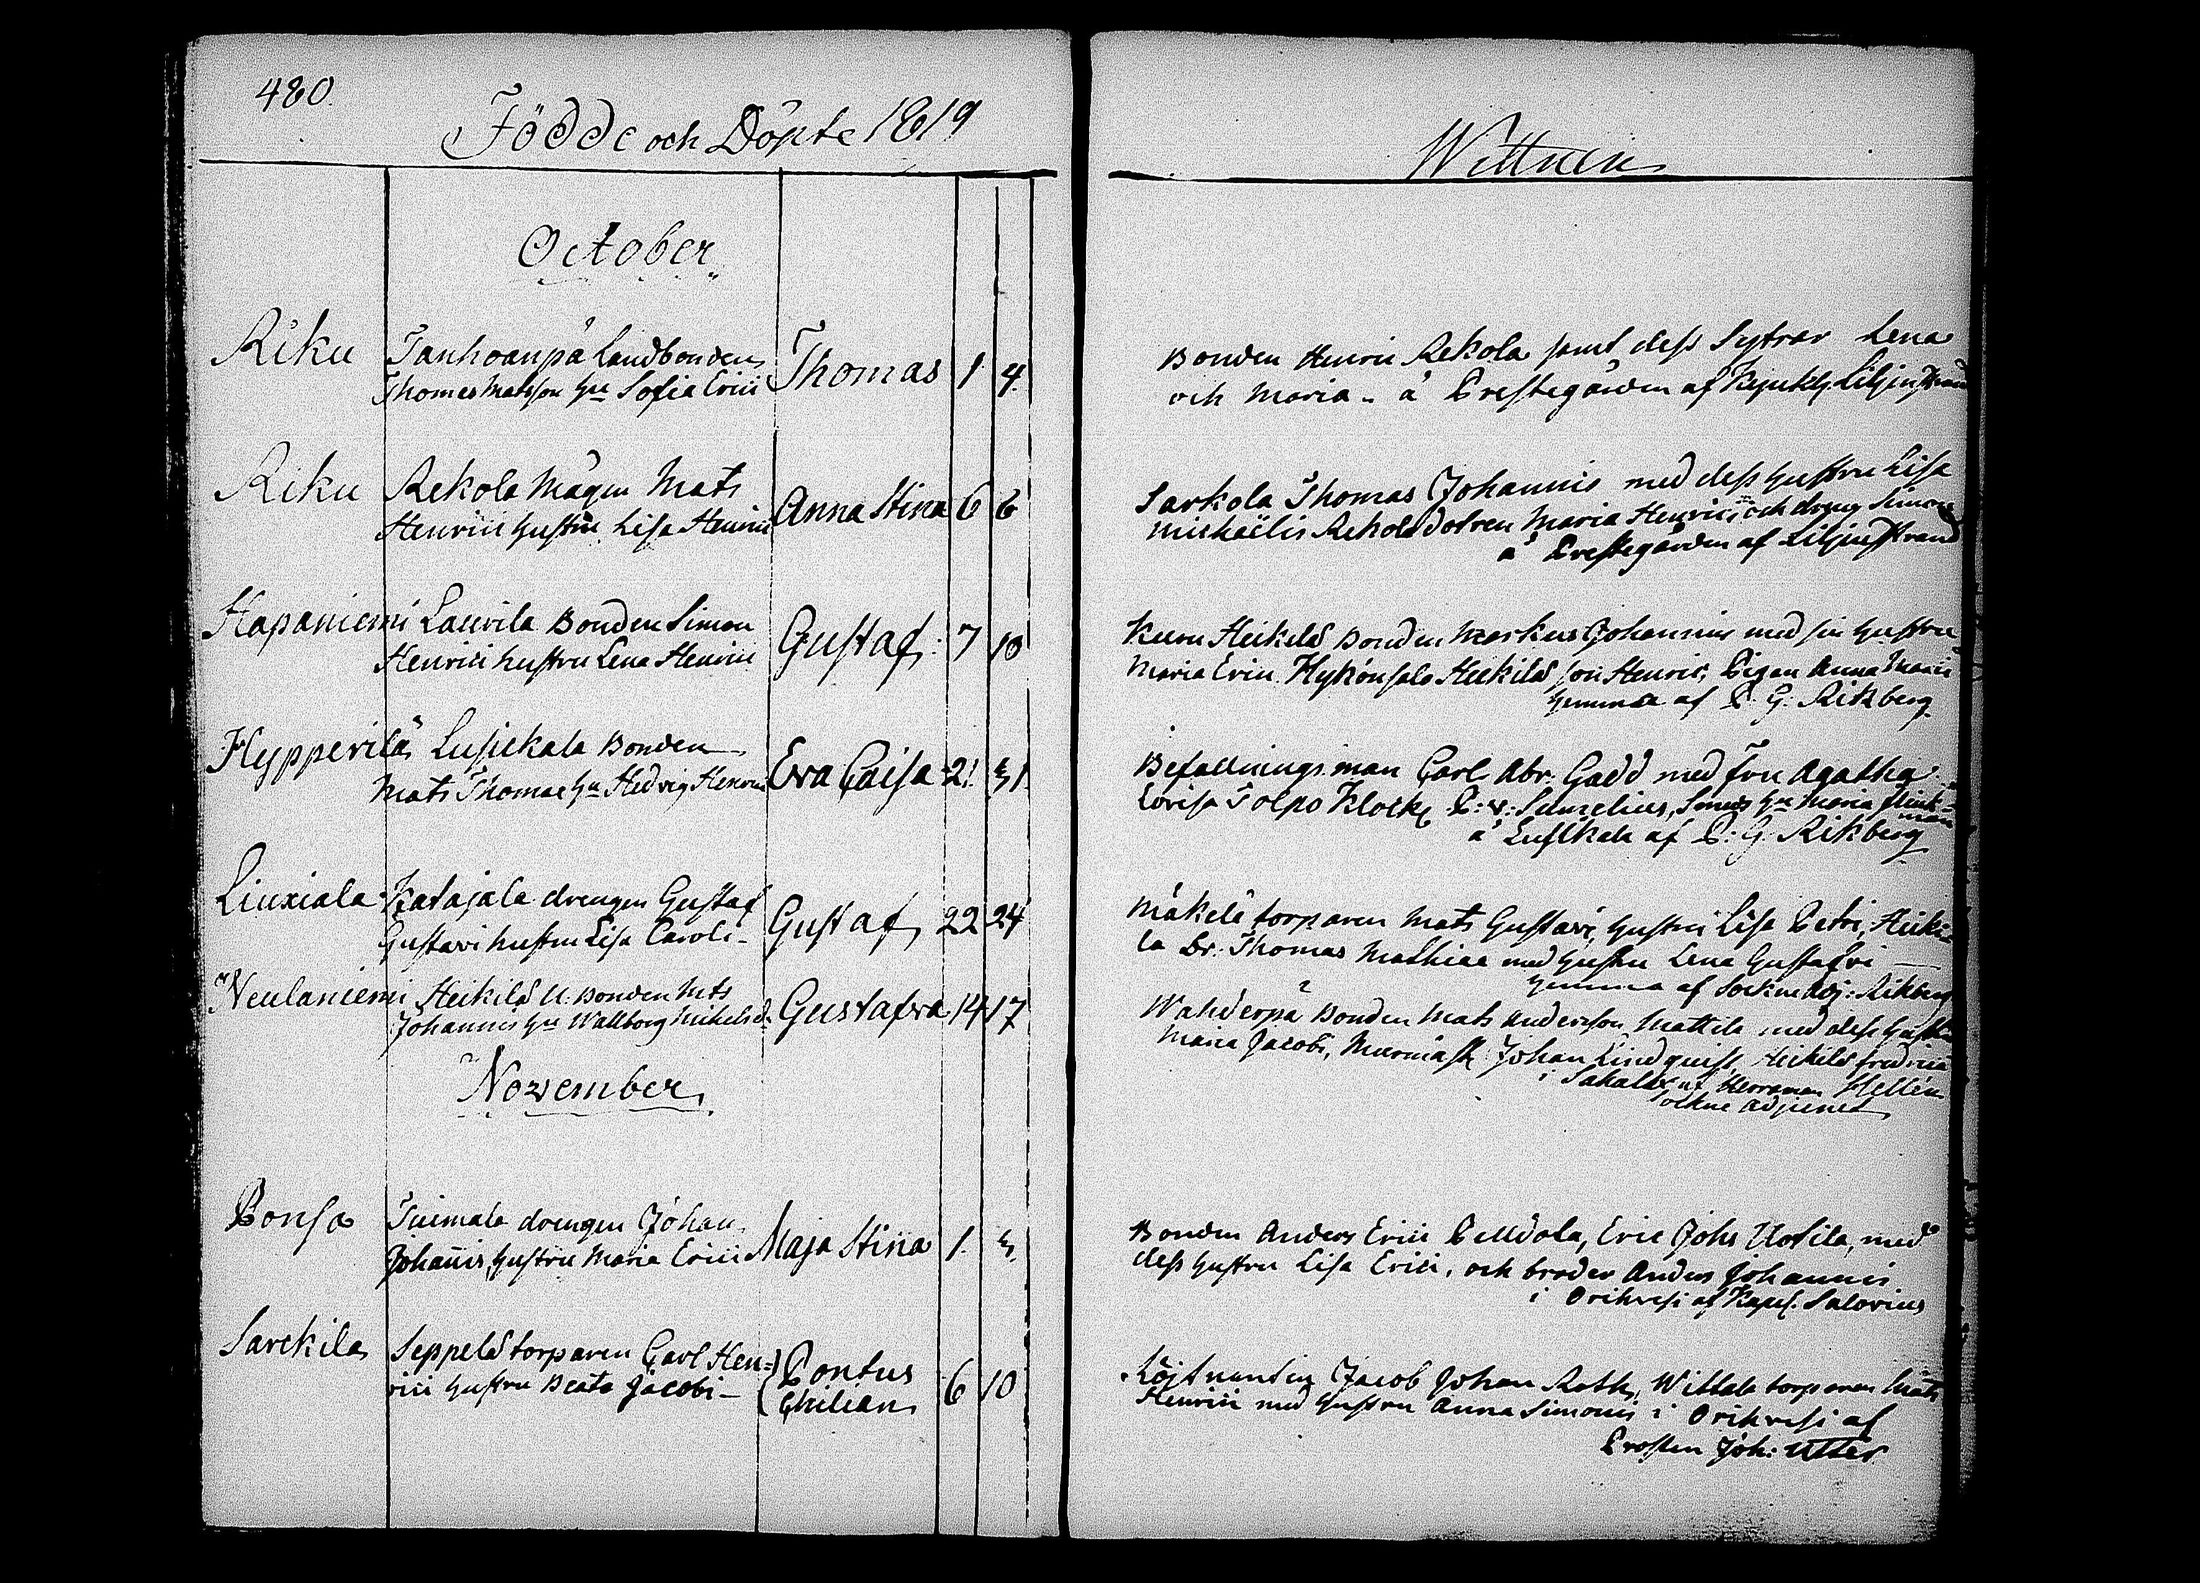 480.
Födde och Döpte 1819
October
Riku Tanhoanpä Landbonden Thomas 1. 4.
Thomas Matsson Hu Sofia Erici
Riku Rekola Mågen Mats Anna Stina 6 6
Henrici hustru Lisa Henrici
Hapaniemi Laurila Bonden Simon Gustaf. 7 10
Henrici hustru Lena Henrici
Hypperilä Bonden Eva Caisa 21. 31.
Mats Thomae Hu Hedvig Henrici
Liuxiala Katajala drengen Gustaf Gustaf 22 24
Gustavi hustru Lisa Caroli
Neulaniemi Heikilä U. Bonden Mts Gustafva 14 17
Johannis Hu Wallborg Mikelsd
November
Ponsa Tuimala drengen Johan Maja Stina 1.
Johanis, hustru Maria Erici
Sarckila Seppelä torparen Carl Hen= Pontus 6 10
rici hustru Beata Jacobi Chilian
Wittnen
Bonden Henric Rekola samt dess Systrar Lena
och Maria. å Prestegården af Liljenstrand
Sarkola Thomas Johannis med dess hustru Lisa
Michaëlis Rekola dotren Maria Henrici och dreng Simon
å Prestegården af Liljenstrand
Heikilä Bonden Markus Johannis med sin hustru
Maria Erici. Hykönsalo Heikilä son Henric, Pigan Anna Maria
hemma af P. G. Rikberg
Befallningsman Carl Abr. Gadd med Fru Agatha
Lovisa Tolpo Klock. Hu Maria Flink=
man
å af P: G. Rikberg
Mäkelä torparen Mats Gustavi, hustru Lisa Petri, Heiki=
la Dr. Thomas Mathiae med hustru Lena Gustafvi
hemma af Sockne Adj: Rikberg
Bonden Mats Andersson Mattila med dess hustru
Maria Jacobi, Johan Lindquist, Heikilä
i Sahalax af Herreman Hellén
Sockne Adjunct
Bonden Anders Erici Pelldola, Eric Johs Uotila, med
dess hustru Lisa Erici, och broder Anders Johannis
i Orihvesi af Kapel. Salovius
Löjtnanten Jacob Johan Roth, torparen Mats
Henrici med hustru Anna Simonis i Orihvesi af
Prosten Joh: Utter